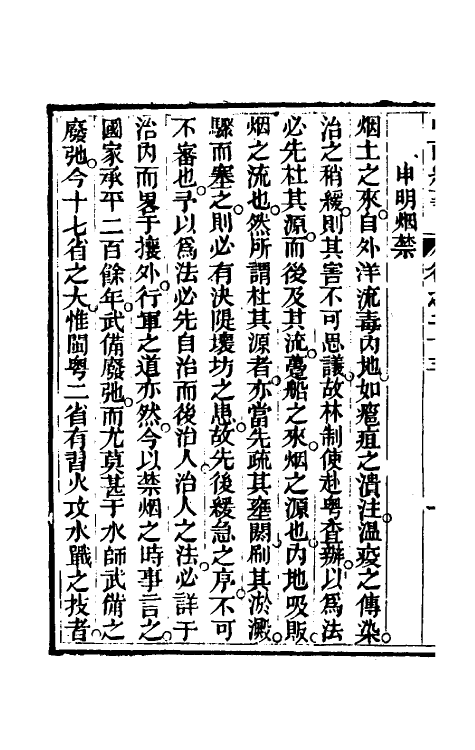 申明烟禁
烟土之來自外洋流毒內地如瘡疽之潰注溫疫之傳染
治之稍緩則其害不可思議故林制使赴粵査辦以爲法
必先杜其源而後及其流躉船之來烟之源也內地吸販
烟之流也然所謂杜其源者亦當先疏其壅閼刷其淤澱
驟而壅之則必有決隄壞坊之患故先後緩急之序不可
不審也予以爲法必先自治而後治人治人之法必詳于
治內而畧于攘外行軍之道亦然今以禁烟之時事言之
國家承平二百餘年武備廢弛而尤莫甚于水師武備之
廢弛今十七省之大惟閩粵二省有習火攻水戰之技者